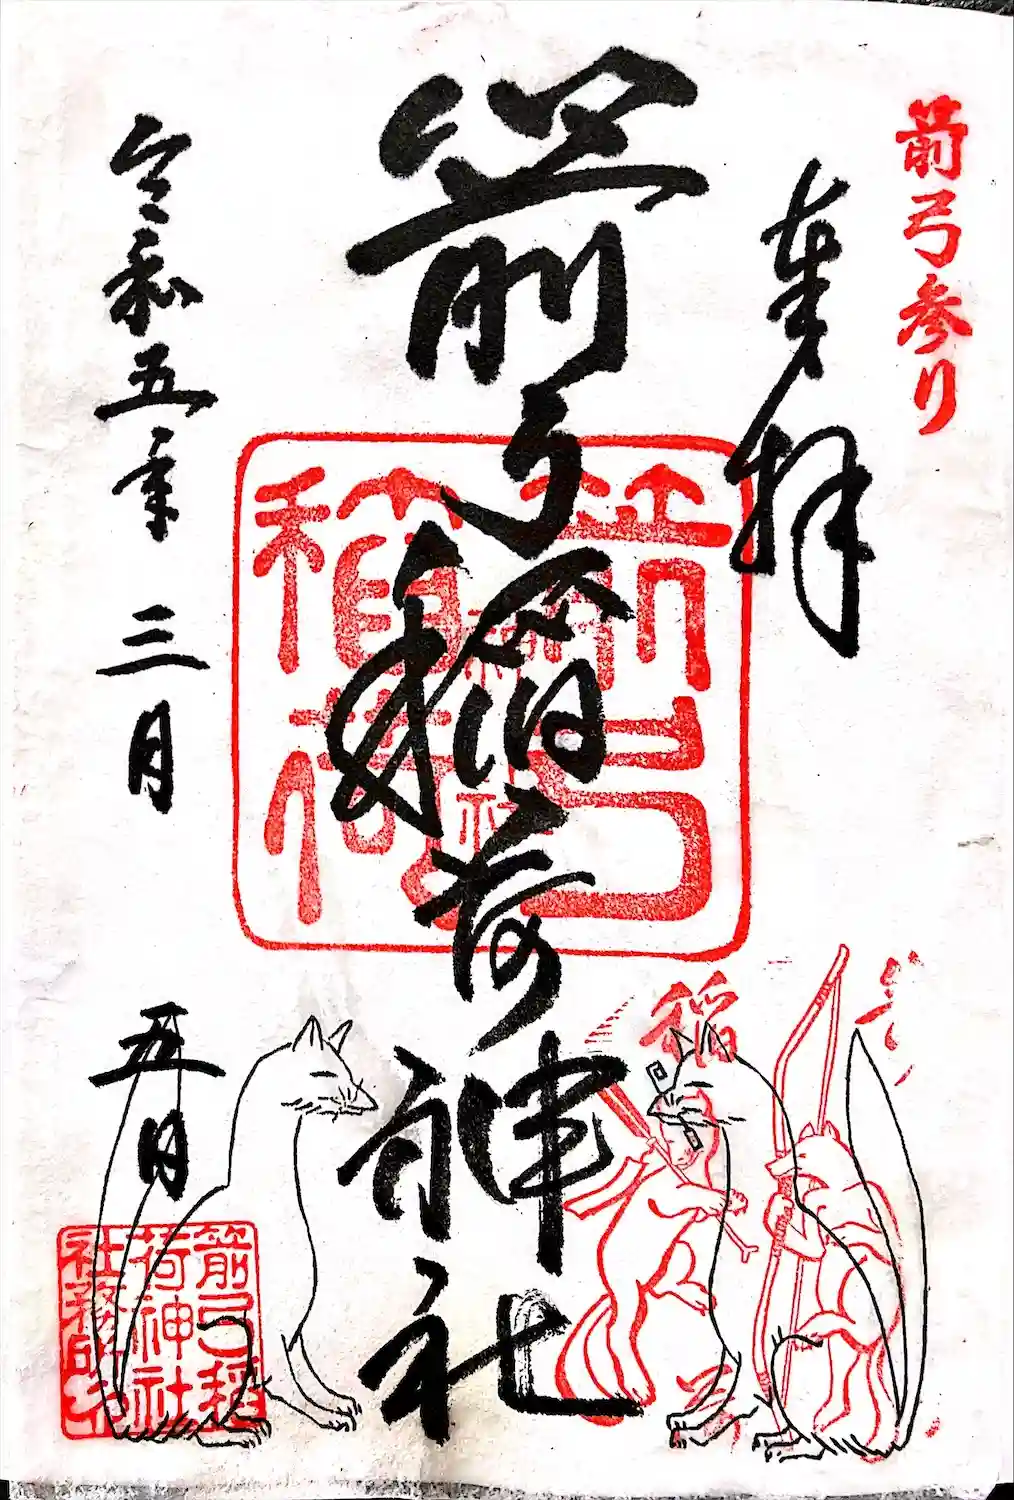 箭弓参り
奉拝
箭弓稲荷神社
令和五年 三月 五日
箭弓
稲荷
稲
箭弓稲
荷神社
社務所印